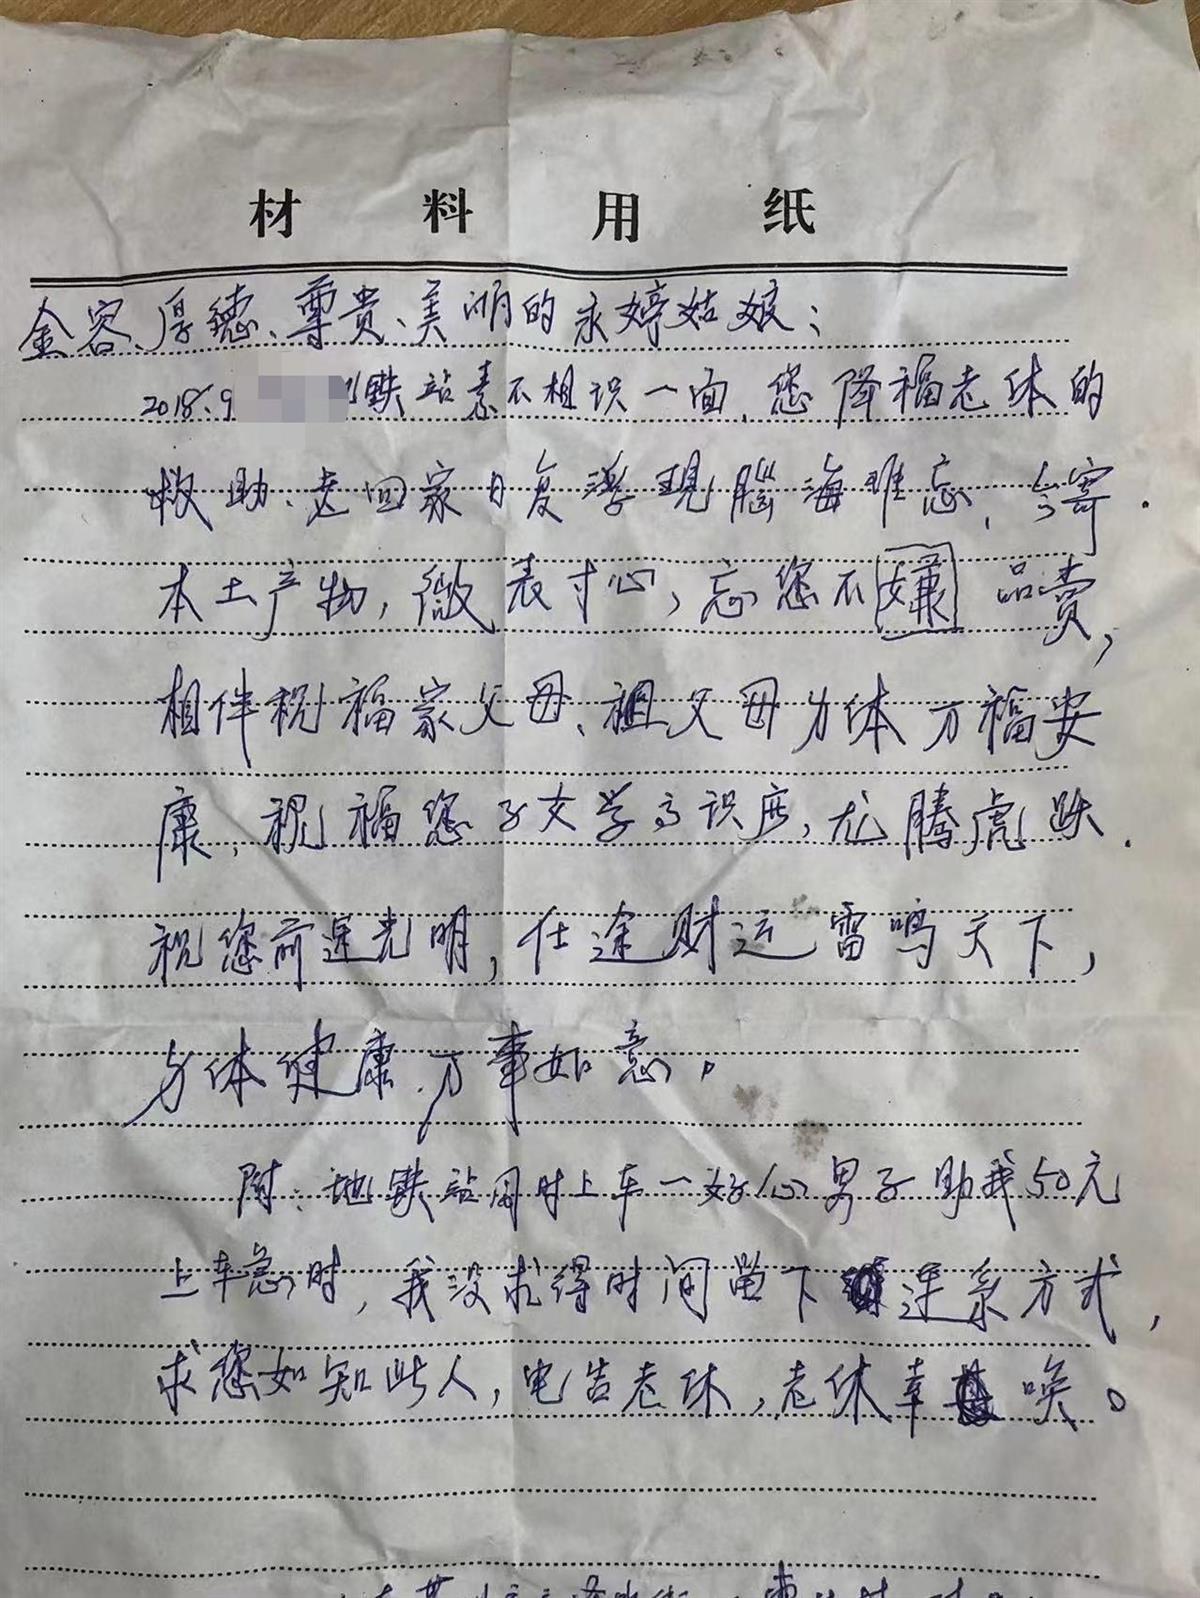 材料用纸
金容、厚德、尊贵、美明的永婷姑娘:
2018.9 铁站素不相识一面,您降福老体的
救助、老回家日复浮现脑海难忘,今寄.
本土产物,微表寸心,忘您不嫌品卖,
相伴祝福家父母、祖父母身体万福安
康,祝福您子女学高识广,龙腾虎跃.
祝您前途光明,仕途财运雷鸣天下,
身体健康.万事如意。
附:地铁站同时上车一好心男子助我50元
上车急时,我没求得时间留下连系方式,
求您如知此人,电告老休,老休幸唤。